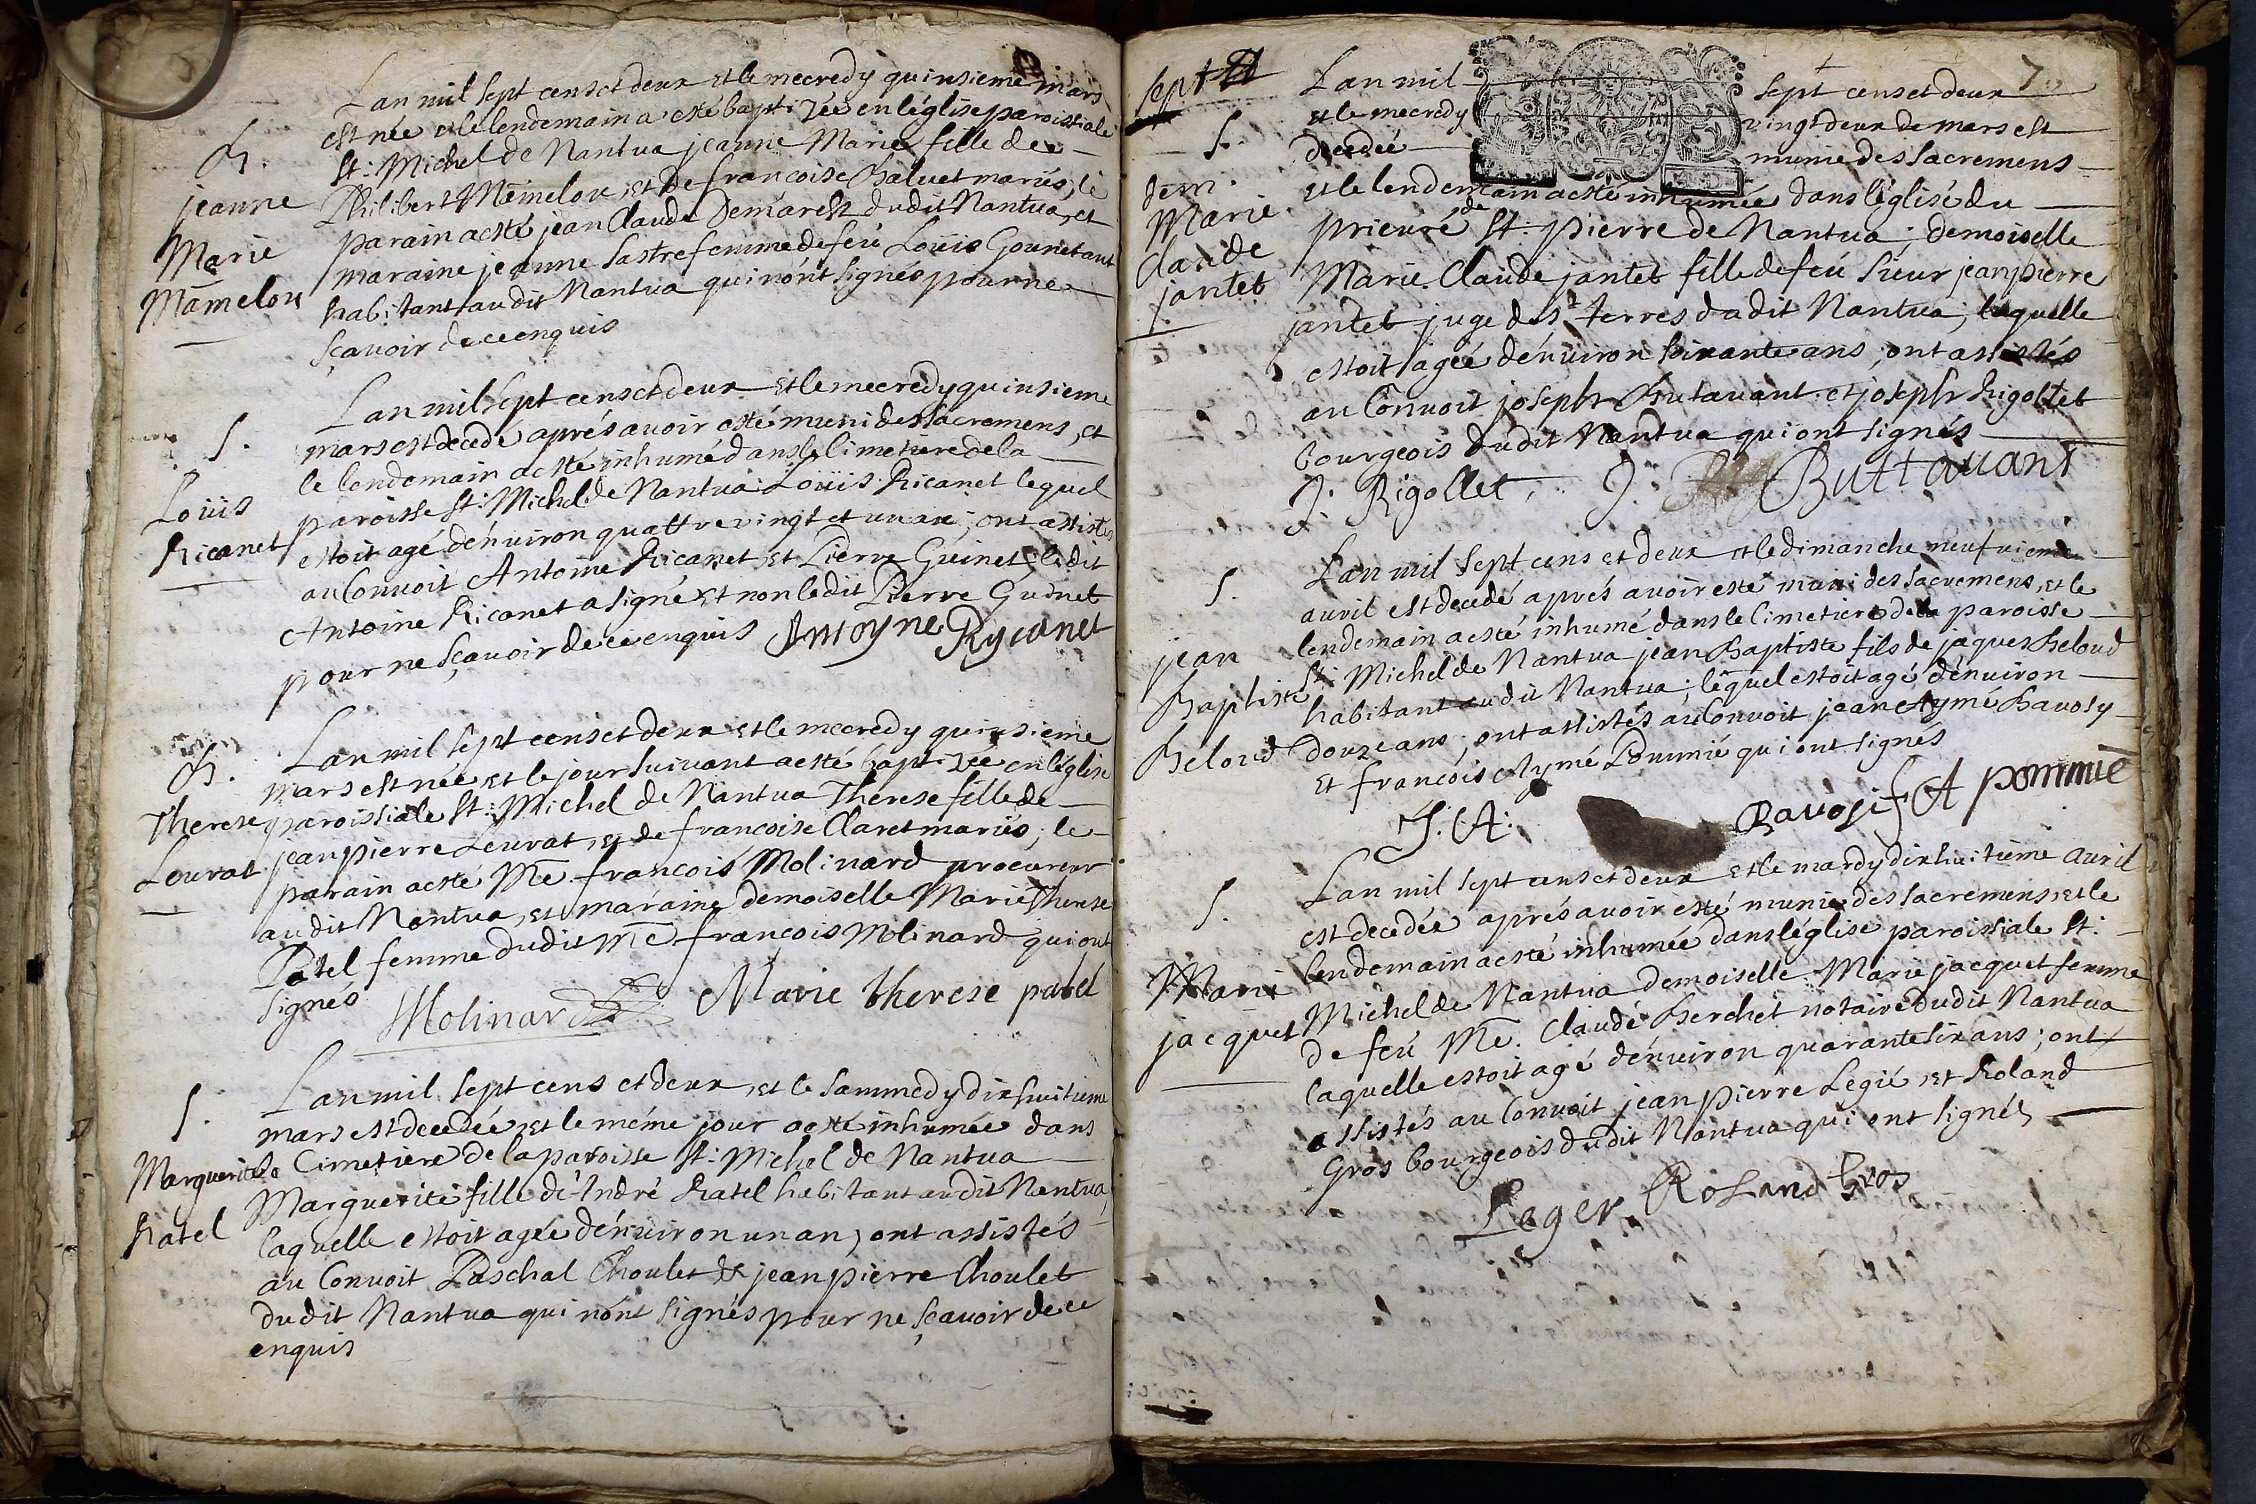 Lan mil sept cens et deux et le mecredy quinsieme mars
est née et le lendemain a esté baptizée en léglise paroissiale
St: Michel de Nantua jeanne Marie fille de
Philibert Mamelou, et de francoise Baluet mariés, le
parain a esté jean Claude Demarest dudit Nantua, et
maraine jeanne Sastre femme de feu Loüis Gounet
habitant audit Nantua qui nónt signés pour ne
sçauoir de ce enquis
B.
jeanne
Marie
Mamelou
Lan mil sept cens et deux et le mecredy quinsieme
mars est decedé aprés auoir esté muni des sacremens, et
le lendemain a esté inhumé dans le Cimetiere de la
paroisse St: Michel de Nantua Loüis Ricanet lequel
estoit agé dénuiron quattre vingt et un an; ont assistés
au Conuoit Antoine Ricanet, et Pierre Guinet, ledit
Antoine Ricanet a signé et non ledit Pierre Guinet
pour ne sçauoir de ce enquis Antoyne Rycanet
S.
Loüis
Ricanet
Lan mil sept cens et deux et le mecredy quinsieme
mars est née et le jour suiuant a esté baptizée en léglise
paroissiale St: Michel de Nantua Therese fille de
jean pierre Leurat, et de francoise Claret mariés; le
parain a esté Me. francois Molinard procureur
audit Nantua, et maraine demoiselle Marie Therese
Patel femme dudit Me francois Molinard qui ont
signés
Molinard Marie therese patel
B.
Therese
Leurat
Lan mil sept cens et deux, et le sammedy dixhuitieme
mars est decedée et le méme jour a esté inhumée dans
le Cimetiere de la paroisse St: Michel de Nantua
Marguerite fille dé André Ratel habitant audit Nantua,
laquelle estoit agée dénuiron un an, ont assistés
au Conuoit Paschal Choulet et jean pierre Choulet
dudit Nantua qui nónt signés pour ne sçauoir de ce
enquis
S.
Marguerite
Ratel
sept
7
Lan mil sept cens et deux
et le mecredy vingt deux de mars est
decedée munie des sacremens
et le lendemain a esté inhumée dans léglise du
prieuré de St: pierre de Nantua; demoiselle
Marie Claude jantet fille de feu sieur jean pierre
jantet juge des terres dudit Nantua, laquelle
estoit agée dénuiron soixante ans, ont assistés
au Conuoit joseph Butauant et joseph Rigollet
bourgeois dudit Nantua qui ont signés
J. Rigollet, J. Buttauant
S.
dem.
Marie
Claude
jantet
Lan mil sept cens et deux et le dimanche neufuieme
auril est decedé aprés auoir esté muni des sacremens, et le
lendemain a esté inhumé dans le Cimetiere de la paroisse
St: Michel de Nantua jean Baptiste fils de jaques Beloud
habitant audit Nantua; lequel estoit agé dénuiron
douze ans, ont assistés au Conuoit jean Aymé Rauosy
et francois Aymé Pommié qui ont signés
J. A: Rauosi f A pommié
S.
jean
Baptiste
Beloud
Lan mil sept cens et deux et le mardy dixhuitieme auril
est decedée aprés auoir esté munie des sacremens, et le
lendemain a esté inhumée dans léglise paroissiale St:
Michel de Nantua demoiselle Marie jacquet femme
de feu Me. Claude Berchet notaire dudit Nantua
laquelle estoit agé dénuiron quarante six ans; ont
assistés au Conuoit jean pierre Legié, et Roland
Gros bourgeois dudit Nantua qui ont signés
Leger. Roland Gros
S.
Marie
jacquet